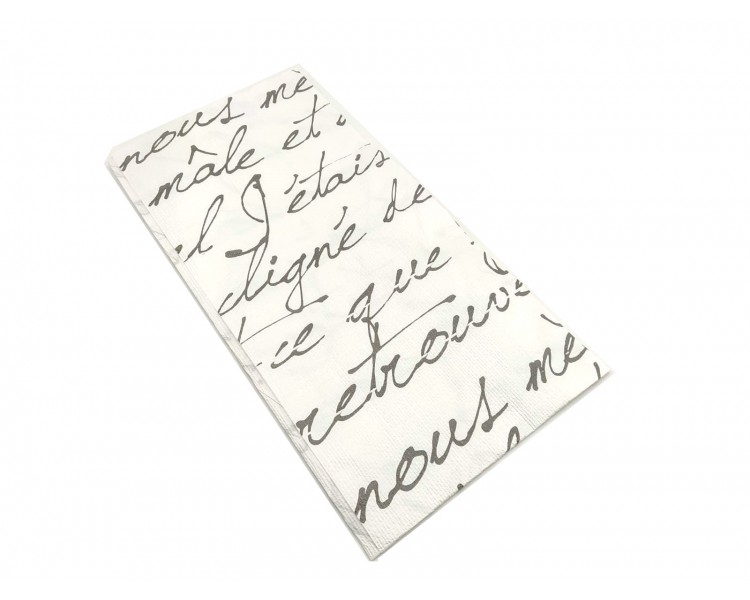 nous mè
mâle et
el J'étais
cligné de
t-ce que
retrouv
nous mè